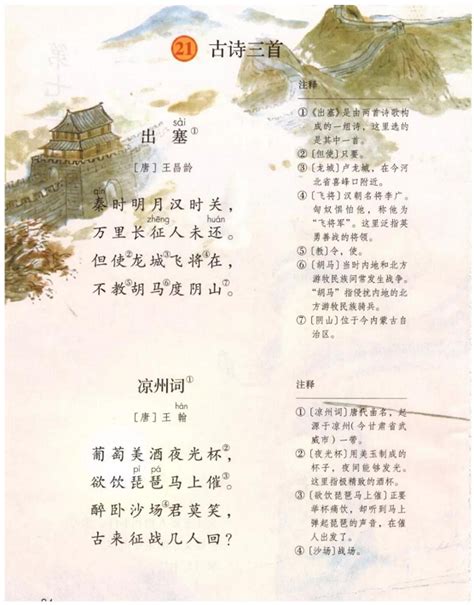 21 古诗三首
sài
出 塞①
［唐］王昌龄
qín
秦时明月汉时关，
zhēng huán
万里长征人未还。
但使②龙城③飞将④在，
不教⑤胡马⑥度阴山⑦。
注释
①《出塞》是由两首诗歌构
成的一组诗，这里选的
是其中一首。
②〔但使〕只要。
③〔龙城〕卢龙城，在今河
北省喜峰口附近。
④〔飞将〕汉朝名将李广。
匈奴惧怕他，称他为
“飞将军”。这里泛指英
勇善战的将领。
⑤〔教〕令，使。
⑥〔胡马〕当时内地和北方
游牧民族间常发生战争。
“胡马”指侵扰内地的北
方游牧民族骑兵。
⑦〔阴山〕位于今内蒙古自
治区。
凉州词①
hán
［唐］王 翰
葡萄美酒夜光杯②，
pí pá
欲饮琵琶马上催③。
醉卧沙场④君莫笑，
古来征战几人回？
注释
①〔凉州词〕唐代曲名，起
源于凉州(今甘肃省武
威市）一带。
②〔夜光杯〕用美玉制成的
杯子，夜间能够发光。
这里指极精致的酒杯。
③〔欲饮琵琶马上催〕正要
举杯痛饮，却听到马上
弹起琵琶的声音，在催
人出发了。
④〔沙场〕战场。